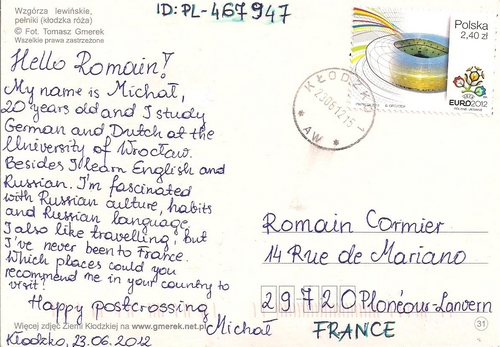 Wzgórza lewińskie,
pełniki (kłodzka róża)
© Fot. Tomasz Gmerek
Wszelkie prawa zastrzeżone
ID: PL-467947
Polska
2,40 zł
EURO2012
KŁODZKO 1
23.06.12.15
* AW *
Hello Romain!
My name is Michał,
20 years old and I study
German and Dutch at the
University of Wrocław.
Besides I learn English and
Russian. I'm fascinated
with Russian culture, habits
and Russian language.
I also like travelling, but
I've never been to France.
Which places could you
recommend me in your country to
visit?
Happy postcrossing
Michał
Kłodzko, 23.06.2012
Romain Cormier
14 Rue de Mariano
29720 Plonéous-Lanvern
FRANCE
Więcej zdjęć Ziemi Kłodzkiej na www.gmerek.net.pl
31